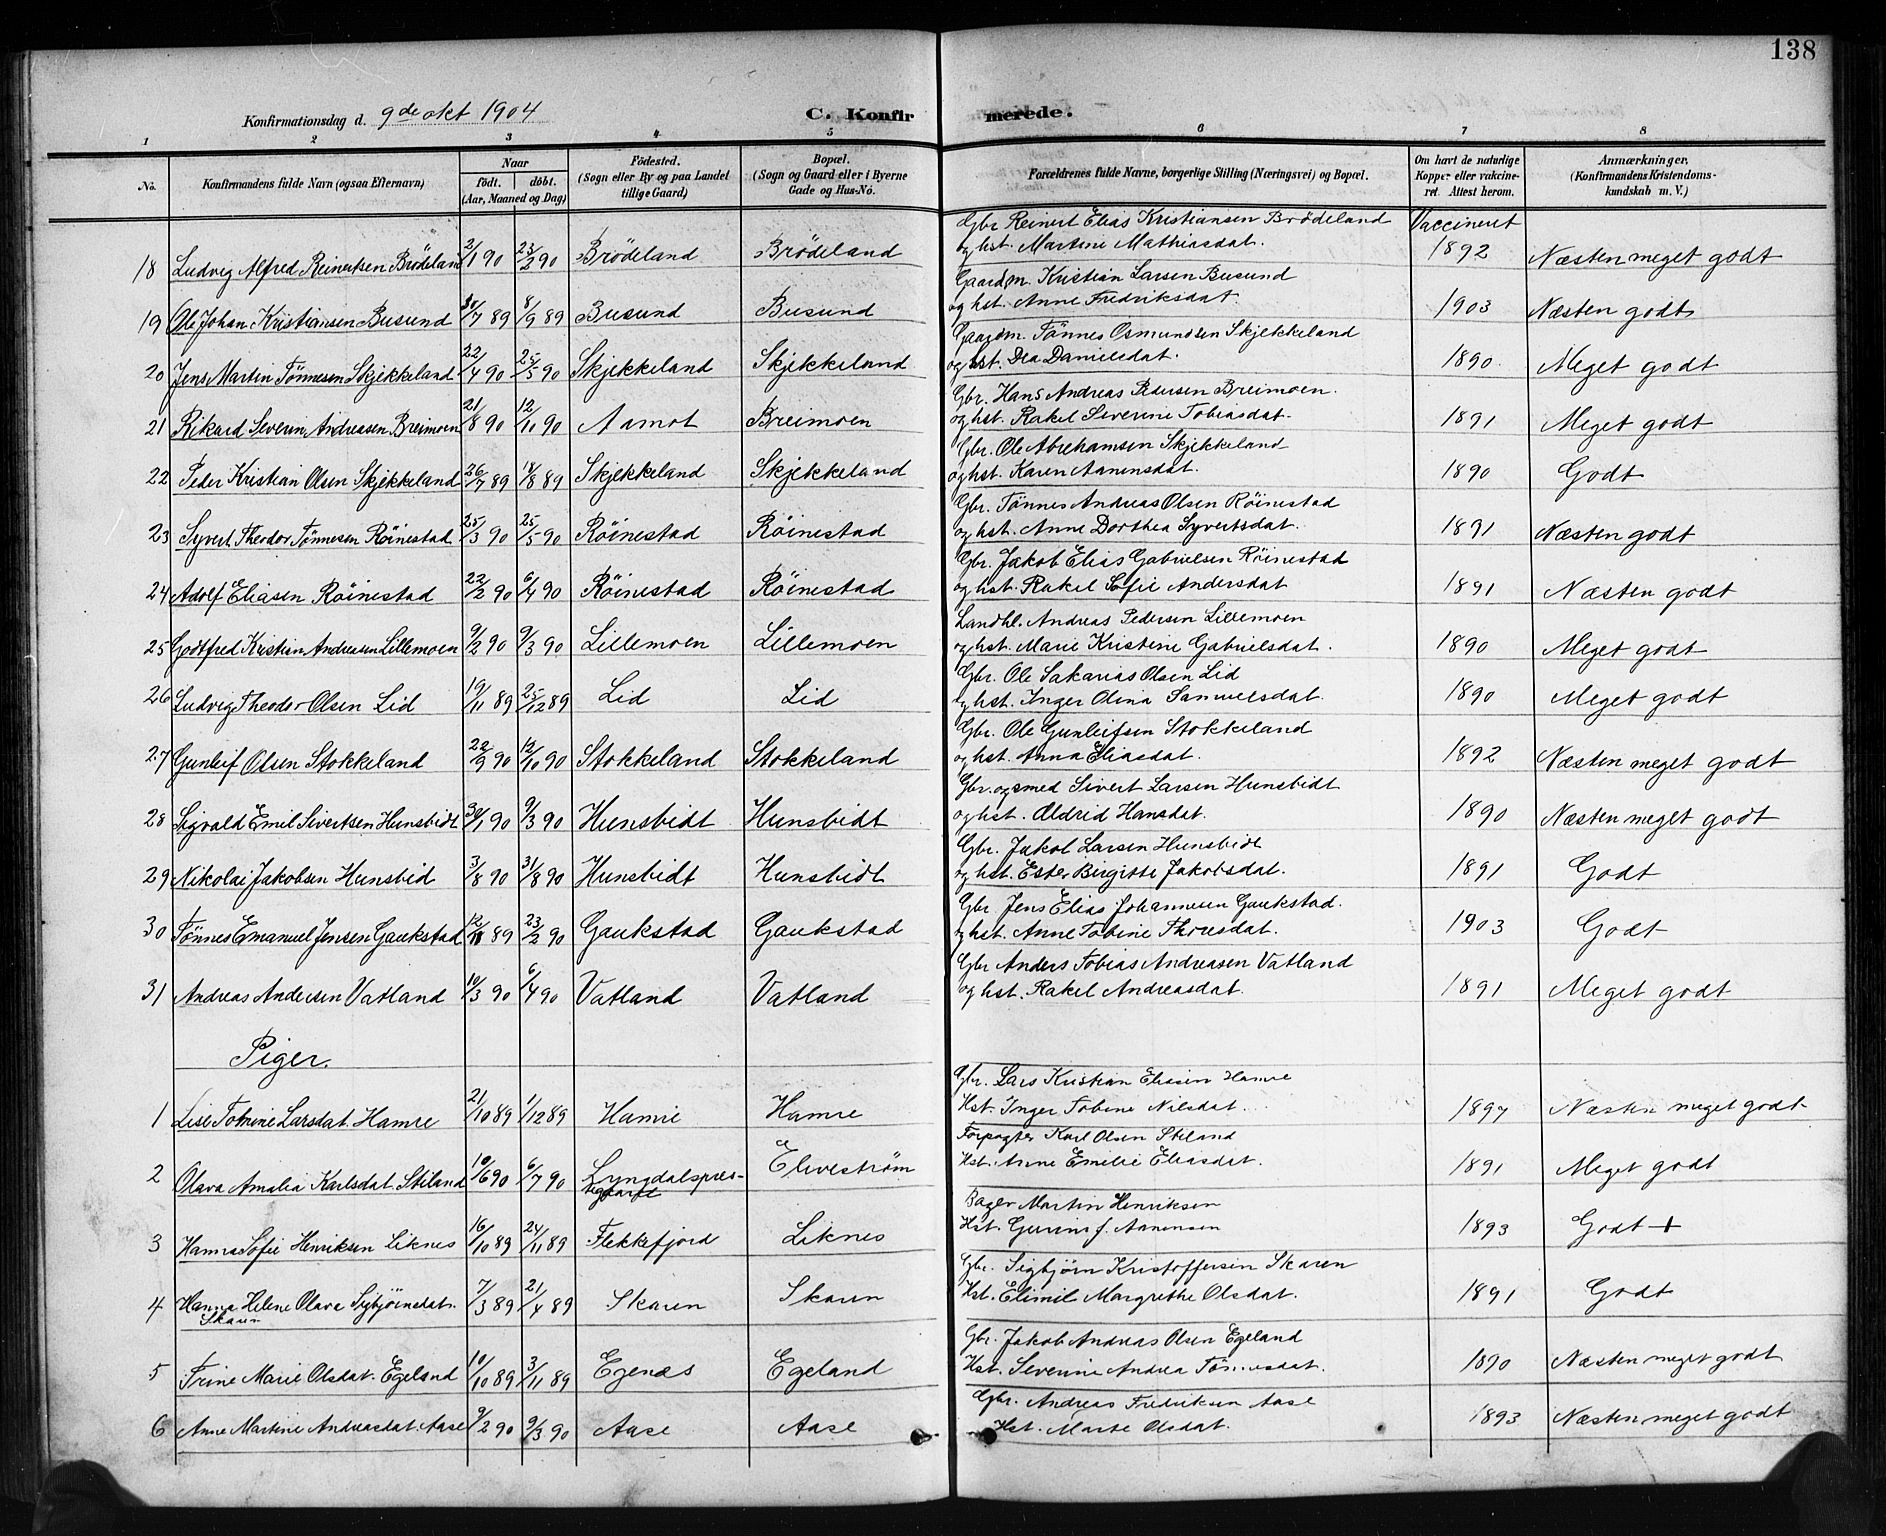 138
Konfirmationsdag d. 9de okt 1904 C. Konfirmerede.
1 2 3 4 5 6 7 8
No. Konfirmandens fulde Navn (ogsaa Efternavn) Naar født. døbt. (Aar, Maaned og Dag) Fødested. (Sogn eller By og paa Landet tillige Gaard) Bopæl. (Sogn og Gaard eller i Byerne Gade og Hus-No. Forældrenes fulde Navne, borgerlige Stilling (Næringsvei) og Bopæl. Om havt de naturlige Kopper eller vakcineret. Attest herom. Anmærkninger. (Konfirmandens Kristendomskundskab m. V.)
Gbr Reinert Elias Kristiansen Brødeland Vaccineret
18 Ludvig Alfred Reinertsen Brødeland 2/1 90 23/2 90 Brødeland Brødeland og hst. Martine Mathiasdat. 1892 Næsten meget godt
Gaardm. Kristian Larsen Busund
19 Ole Johan Kristiansen Busund 30/7 89 8/9 89 Busund Busund og hst. Anne Fredriksdat. 1903 Næsten godt
Gaardm. Tønnes Osmundsen Skjekkeland
20 Jens Martin Tønnesen Skjekkeland 22/4 90 25/5 90 Skjekkeland Skjekkeland og hst. Dea Danielsdat. 1890. Meget godt
Gbr. Hans Andreas Pedersen Breimoen.
21 Rikard Severin Andreasen Breimoen 21/8 90 12/10 90 Aamot Breimoen og hst. Rakel Severine Tobiasdat. 1891 Meget godt
Gbr. Ole Abrahamsen Skjekkeland
22 Peder Kristian Olsen Skjekkeland 26/7 89 18/8 89 Skjekkeland Skjekkeland og hst. Karen Aanensdat. 1890 Godt
Gbr. Tønnes Andreas Olsen Røinestad
23 Syvert Theodor Tønnesen Røinestad 25/3 90 25/5 90 Røinestad Røinestad og hst. Anne Dorthea Syvertsdat. 1891 Næsten godt
Gbr. Jakob Elias Gabrielsen Røinestad
24 Adolf Eliasen Røinestad 22/2 90 6/4 90 Røinestad Røinestad og hst. Rakel Sofie Andersdat 1891 Næsten godt
Landhl. Andreas Pedersen Lillemoen
25 Godtfred Kristian Andreasen Lillemoen 9/2 90 9/3 90 Lillemoen Lillemoen og hst. Marie Kristine Gabrielsdat. 1890 Meget godt
Gbr. Ole Sakarias Olsen Lid
26 Ludvig Theodor Olsen Lid 19/11 89 25/12 89 Lid Lid og hst. Inger Olina Samuelsdat. 1890 Meget godt
Gbr. Ole Gunleifsen Stokkeland
27 Gunleif Olsen Stokkeland 22/9 90 12/10 90 Stokkeland Stokkeland og hst. Anna Eliasdat. 1892 Næsten meget godt
Gbr. og smed Sivert Larsen Hunsbidt
28 Sigvald Emil Sivertsen Hunsbidt 30/1 90 9/3 90 Hunsbidt Hunsbidt og hst. Aldrid Hansdat. 1890 Næsten meget godt
Gbr. Jakob Larsen Hunsbidt
29 Nikolai Jakobsen Hunsbid 3/8 90 31/8 90 Hunsbidt Hunsbidt og hst. Ester Birgitte Jakobsdat. 1891 Godt
Gbr Jens Elias Johannesen Gaukstad.
30 Tønnes Emanuel Jensen Gaukstad 12/11 89 23/2 90 Gaukstad Gaukstad og hst. Anne Tobine Thruesdat. 1903 Godt
Gbr Anders Tobias Andreasen Vatland
31 Andreas Andersen Vatland 10/3 90 6/4 90 Vatland Vatland og hst. Rakel Andreasdat. 1891 Meget godt
Piger.
Gbr. Lars Kristian Eliasen Hamre
1 Lise Tomine Larsdat. Hamre 21/10 89 1/12 89 Hamre Hamre Hst. Inger Tobine Nilsdat. 1897 Næsten meget godt
Forpagter Karl Olsen Stiland
2 Olava Amalia Karlsdat. Stiland 10/6 90 6/7 90 Lyngdalspres- Elvestrøm Hst. Anne Emilie Eliasdat. 1891 Meget godt
tegaard
Bager Martin Henriksen
3 Hanna Sofie Henriksen Liknes 16/10 89 24/11 89 Flekkefjord Liknes Hst. Gurine f. Aanensen 1893 Godt +
Gbr. Sigbjørn Kristoffersen Skaren
4 Hanna Helene Olava Sigbjørnsdat. 7/3 89 21/4 89 Skaren Skaren Hst. Elimil Margrethe Olsdat. 1891 Godt
Skaren
Gbr. Jakob Andreas Olsen Egeland
5 Trine Marie Olsdat. Egeland 10/10 89 3/11 89 Egenæs Egeland Hst. Severine Andrea Tønnesdat. 1890 Næsten meget godt
Gbr. Andreas Fredriksen Aase
6 Anne Martine Andreasdat. Aase 9/2 90 9/3 90 Aase Aase Hst. Marte Olsdat. 1893 Næsten meget godt